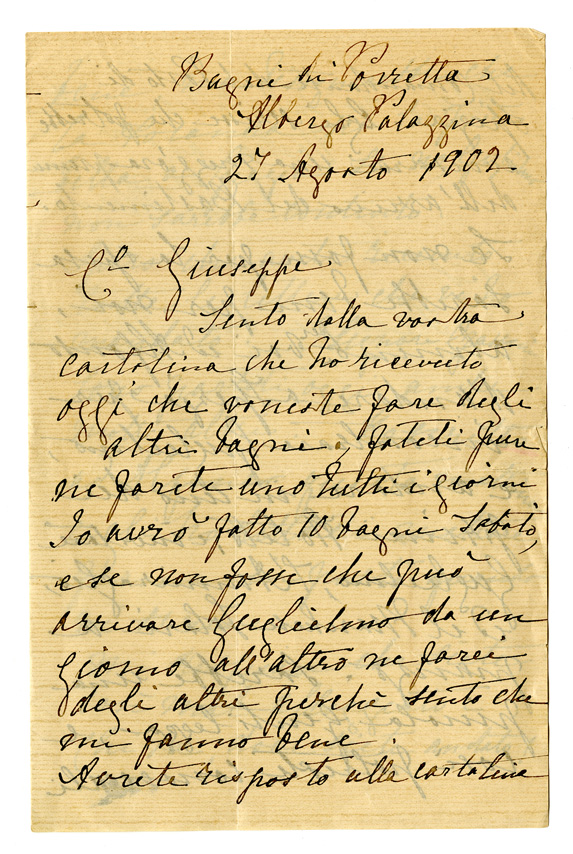 Bagni di Porretta
Albergo Palazzina
27 Agosto 1902
Cº Giuseppe
Sento dalla vostra
cartolina che ho ricevuto
oggi che voreste fare degli
altri bagni, fateli pure
ne farete uno tutti i giorni
Io avrò fatto 10 bagni Sabato,
e se non fosse che può
arrivare Guglielmo da un
giorno all'altro ne farei
degli altri perchè sento che
mi fanno bene.
Avrete risposto alle cartoline